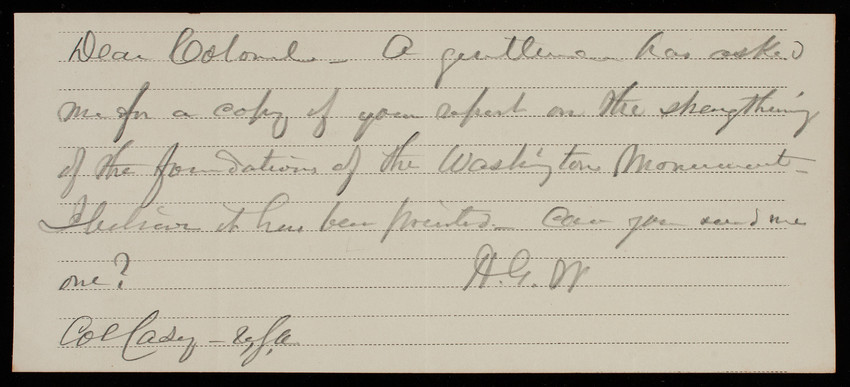 Dear Colonel - A gentleman has asked
me for a copy of your report on the strengthening
of the foundations of the Washington Monument -
I believe it has been printed - Can you send me
one? H. G. W
Col Casey -